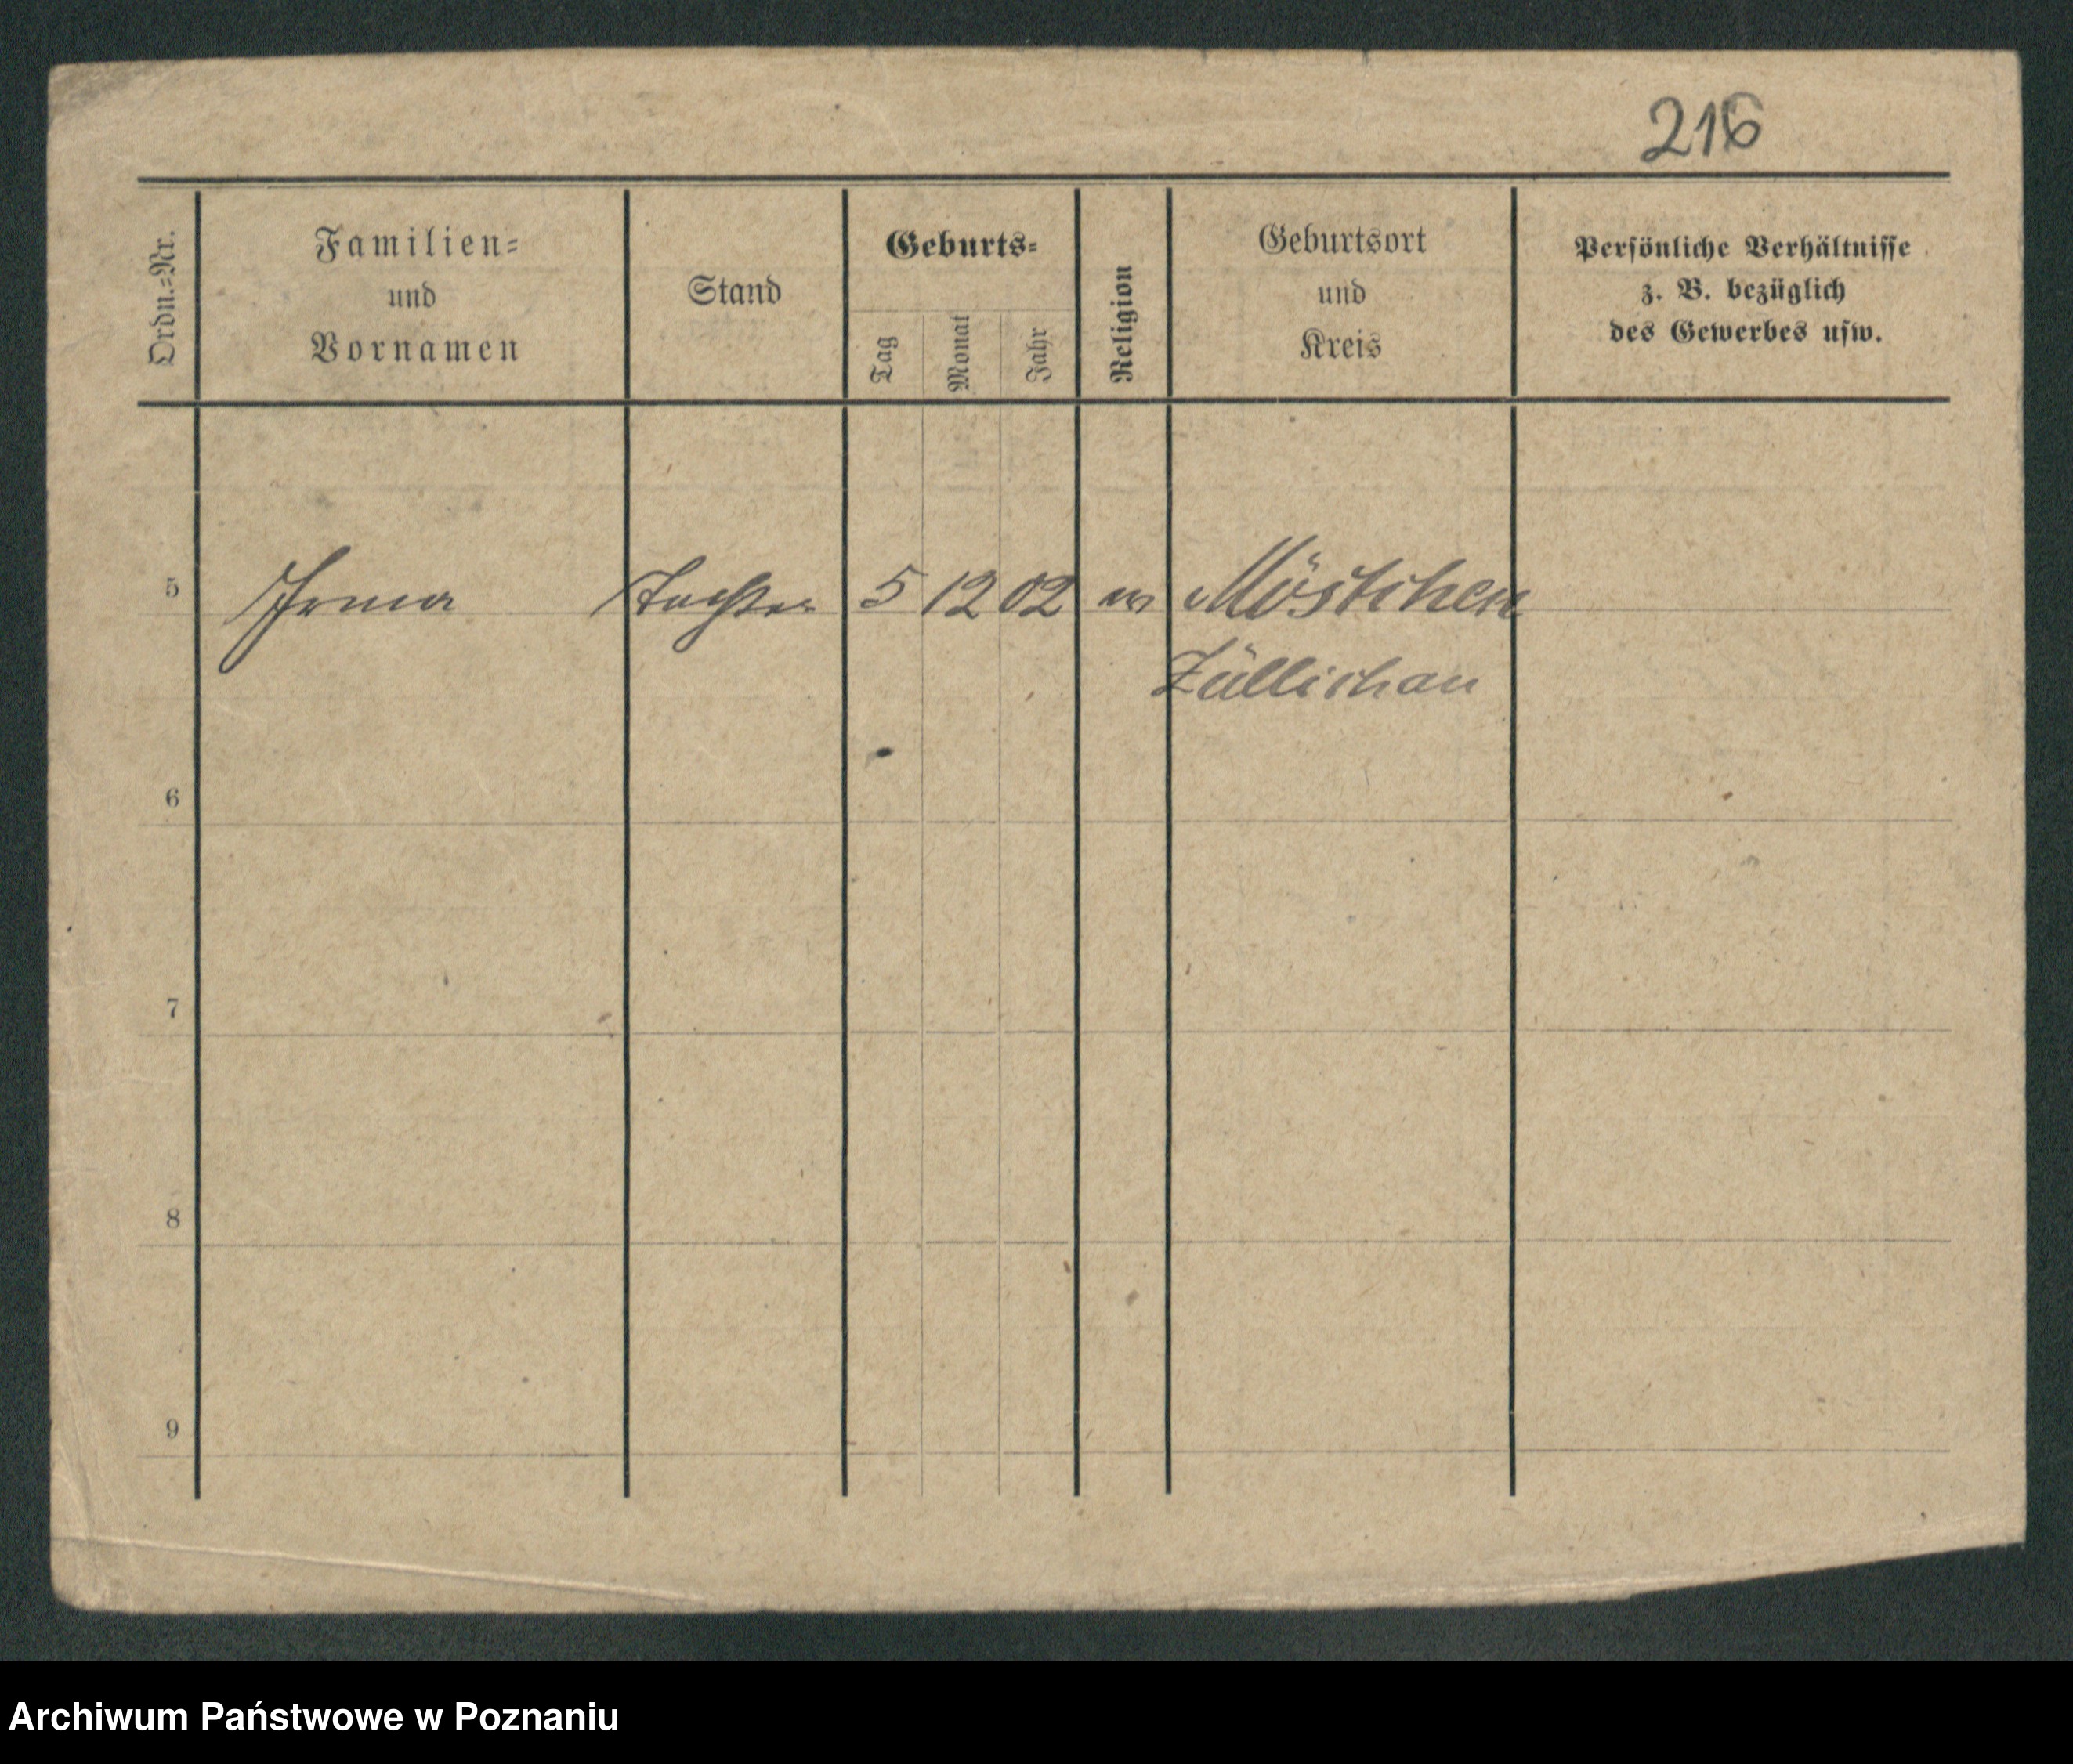 216
Ordn.=Nr.
Familien=
und
Vornamen
Stand
Geburts=
Tag
Monat
Jahr
Religion
Geburtsort
und
Kreis
Persönliche Verhältnisse
z. B. bezüglich
des Gewerbes usw.
5 Irma Tochter 5 12 02 ev Möstchen
Züllichau
6
7
8
9
Archiwum Państwowe w Poznaniu